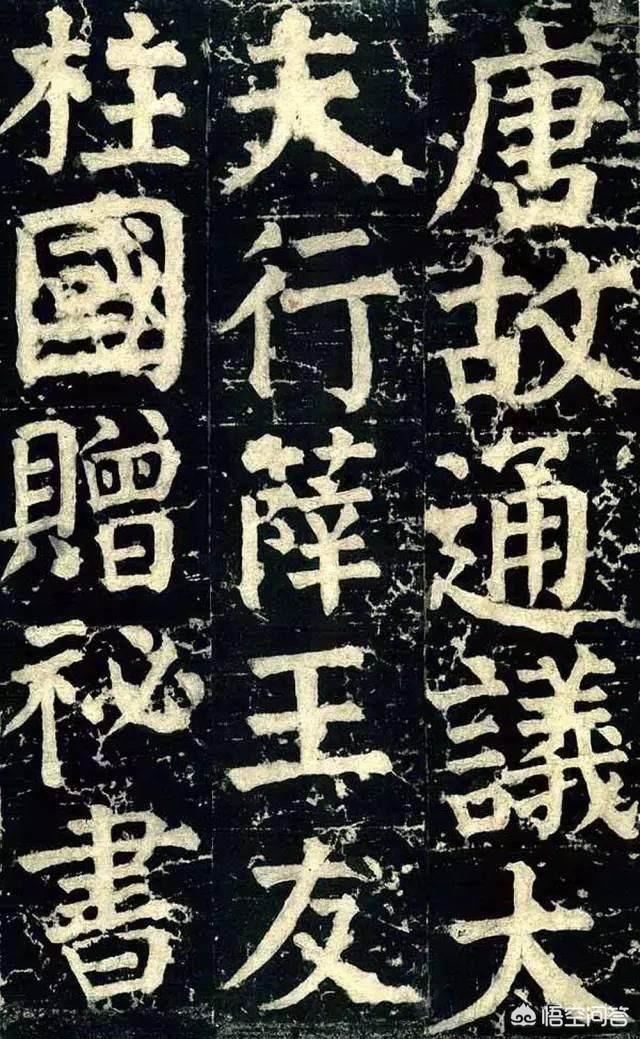 唐故通議大
夫行薛王友
柱國贈祕書
悟空问答